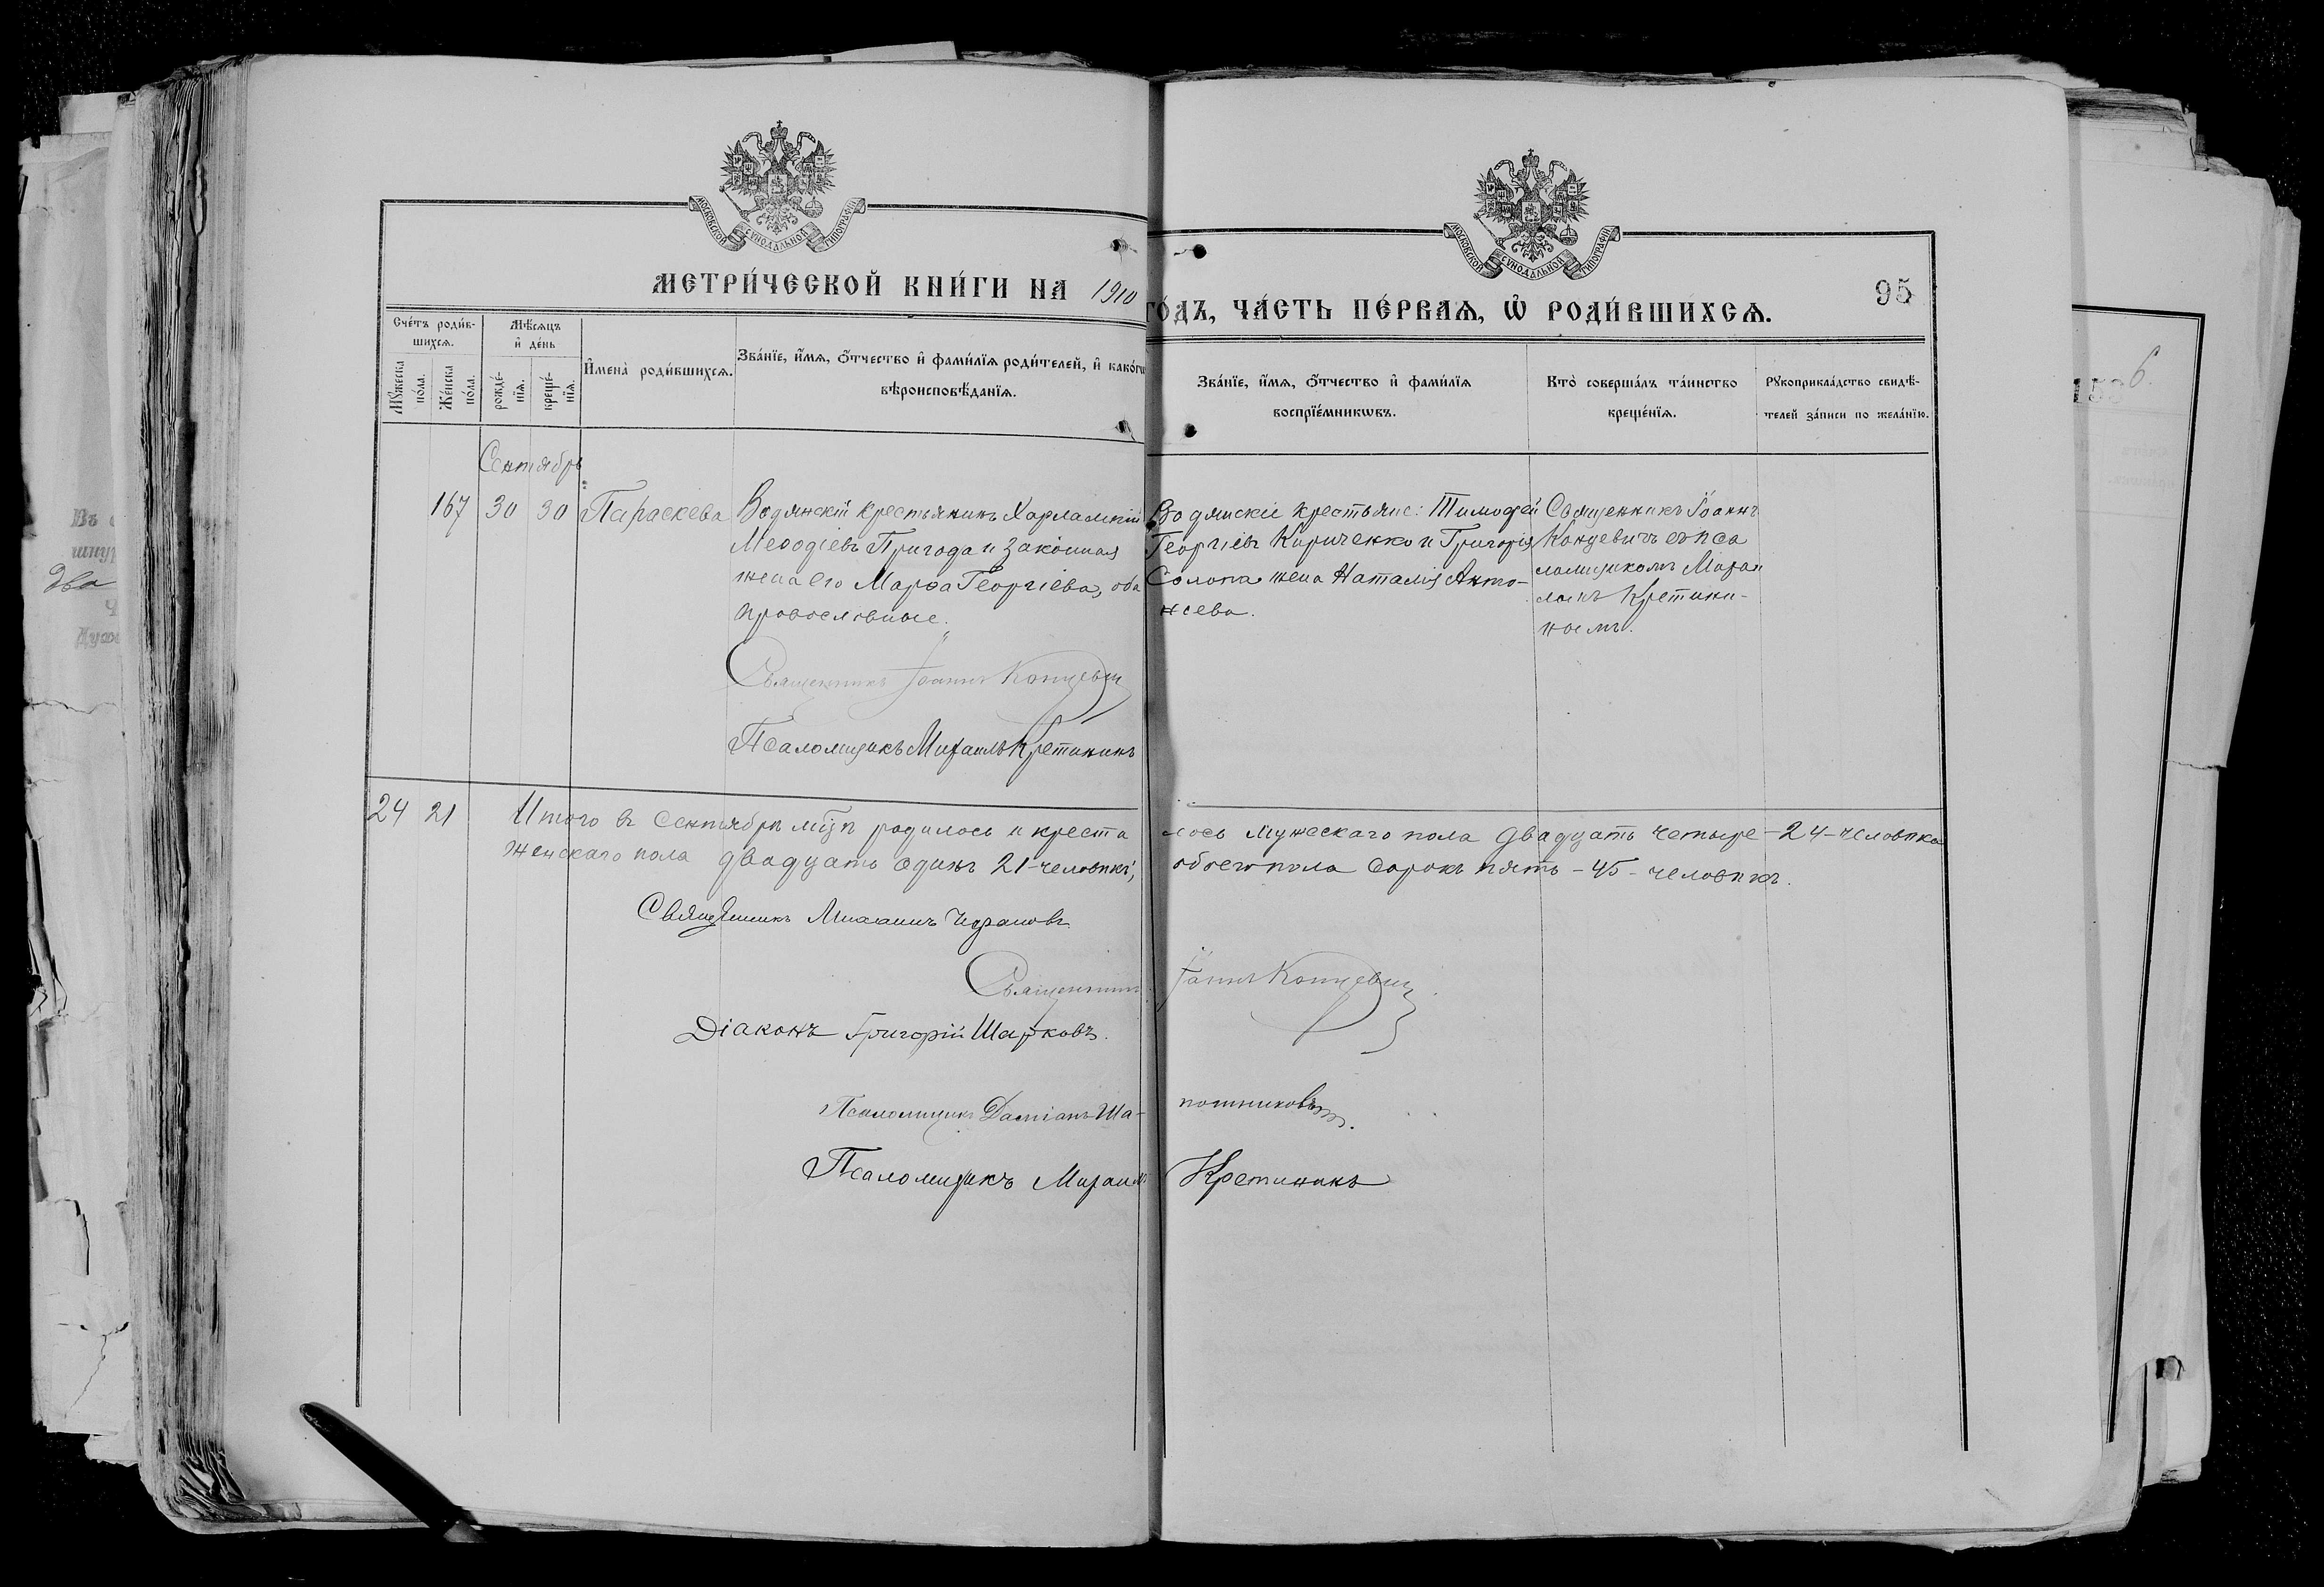 МОСКОВСКОЙ СѴНОДАЛЬНОЙ ТИПОГРАФІИ
МОСКОВСКОЙ СѴНОДАЛЬНОЙ ТИПОГРАФІИ
МЕТРИ́ЧЕСКОЙ КНИ́ГИ НА 1910
ГО́ДЪ, ЧА́СТЬ ПЕ́РВАѦ, Ѽ РОДИ́ВШИХСѦ.
95
Сче́тъ роди́в-
шихсѧ.
Мꙋ́жеска
по́ла.
Же́нска
по́ла.
Мѣ́сѧцъ
и҆ де́нь
рожде́-
нїѧ.
креще́-
нїѧ.
И҆мена̀ роди́вшихсѧ.
Зва́нїе, и҆́мѧ, ѻ҆́тчество и҆ фами́лїѧ роди́телей, и҆ како́гѡ
вѣроисповѣ́данїѧ.
Зва́нїе, и҆́мѧ, ѻ҆́тчество и҆ фами́лїѧ
воспрїе́мникѡвъ.
Кто̀ соверша́лъ та́инство
креще́нїѧ.
Рꙋкоприкла́дство свидѣ́-
телей за́писи по жела́нїю.
Сентябрь
167 30 30 Параскева
Водянскій крестьянинъ Харлампій
Меѳодіевъ Пригода и законная
жена его Марѳа Георгіева, оба
православные.
Священникъ Іоаннъ Концевич
Псаломщикъ Михаилъ Кретининъ
Водянскіе крестьяне: Тимофей
Георгіевъ Кириченко и Григорія
Солопа жена Наталія Анто-
нiева.
Священникъ Іоаннъ
Концевичъ съ пса
ломщикомъ Михаи
ломъ Кретини-
ноемъ.
24 21 Итого въ Сентябрѣ мцѣ родилось и крести
лось мужескаго пола двадцать четыре - 24 - человѣка
женскаго пола двадцать одинъ 21 - человѣкъ,
обоего пола сорокъ пять - 45 - человѣкъ.
Священникъ Михаилъ
Священникъ Іоаннъ Концевич
Діаконъ Григорій Шарковъ.
Псаломщикъ Даміанъ Ша-
пошниковъ.
Псаломщикъ Михаилъ Кретининъ
6.
Два